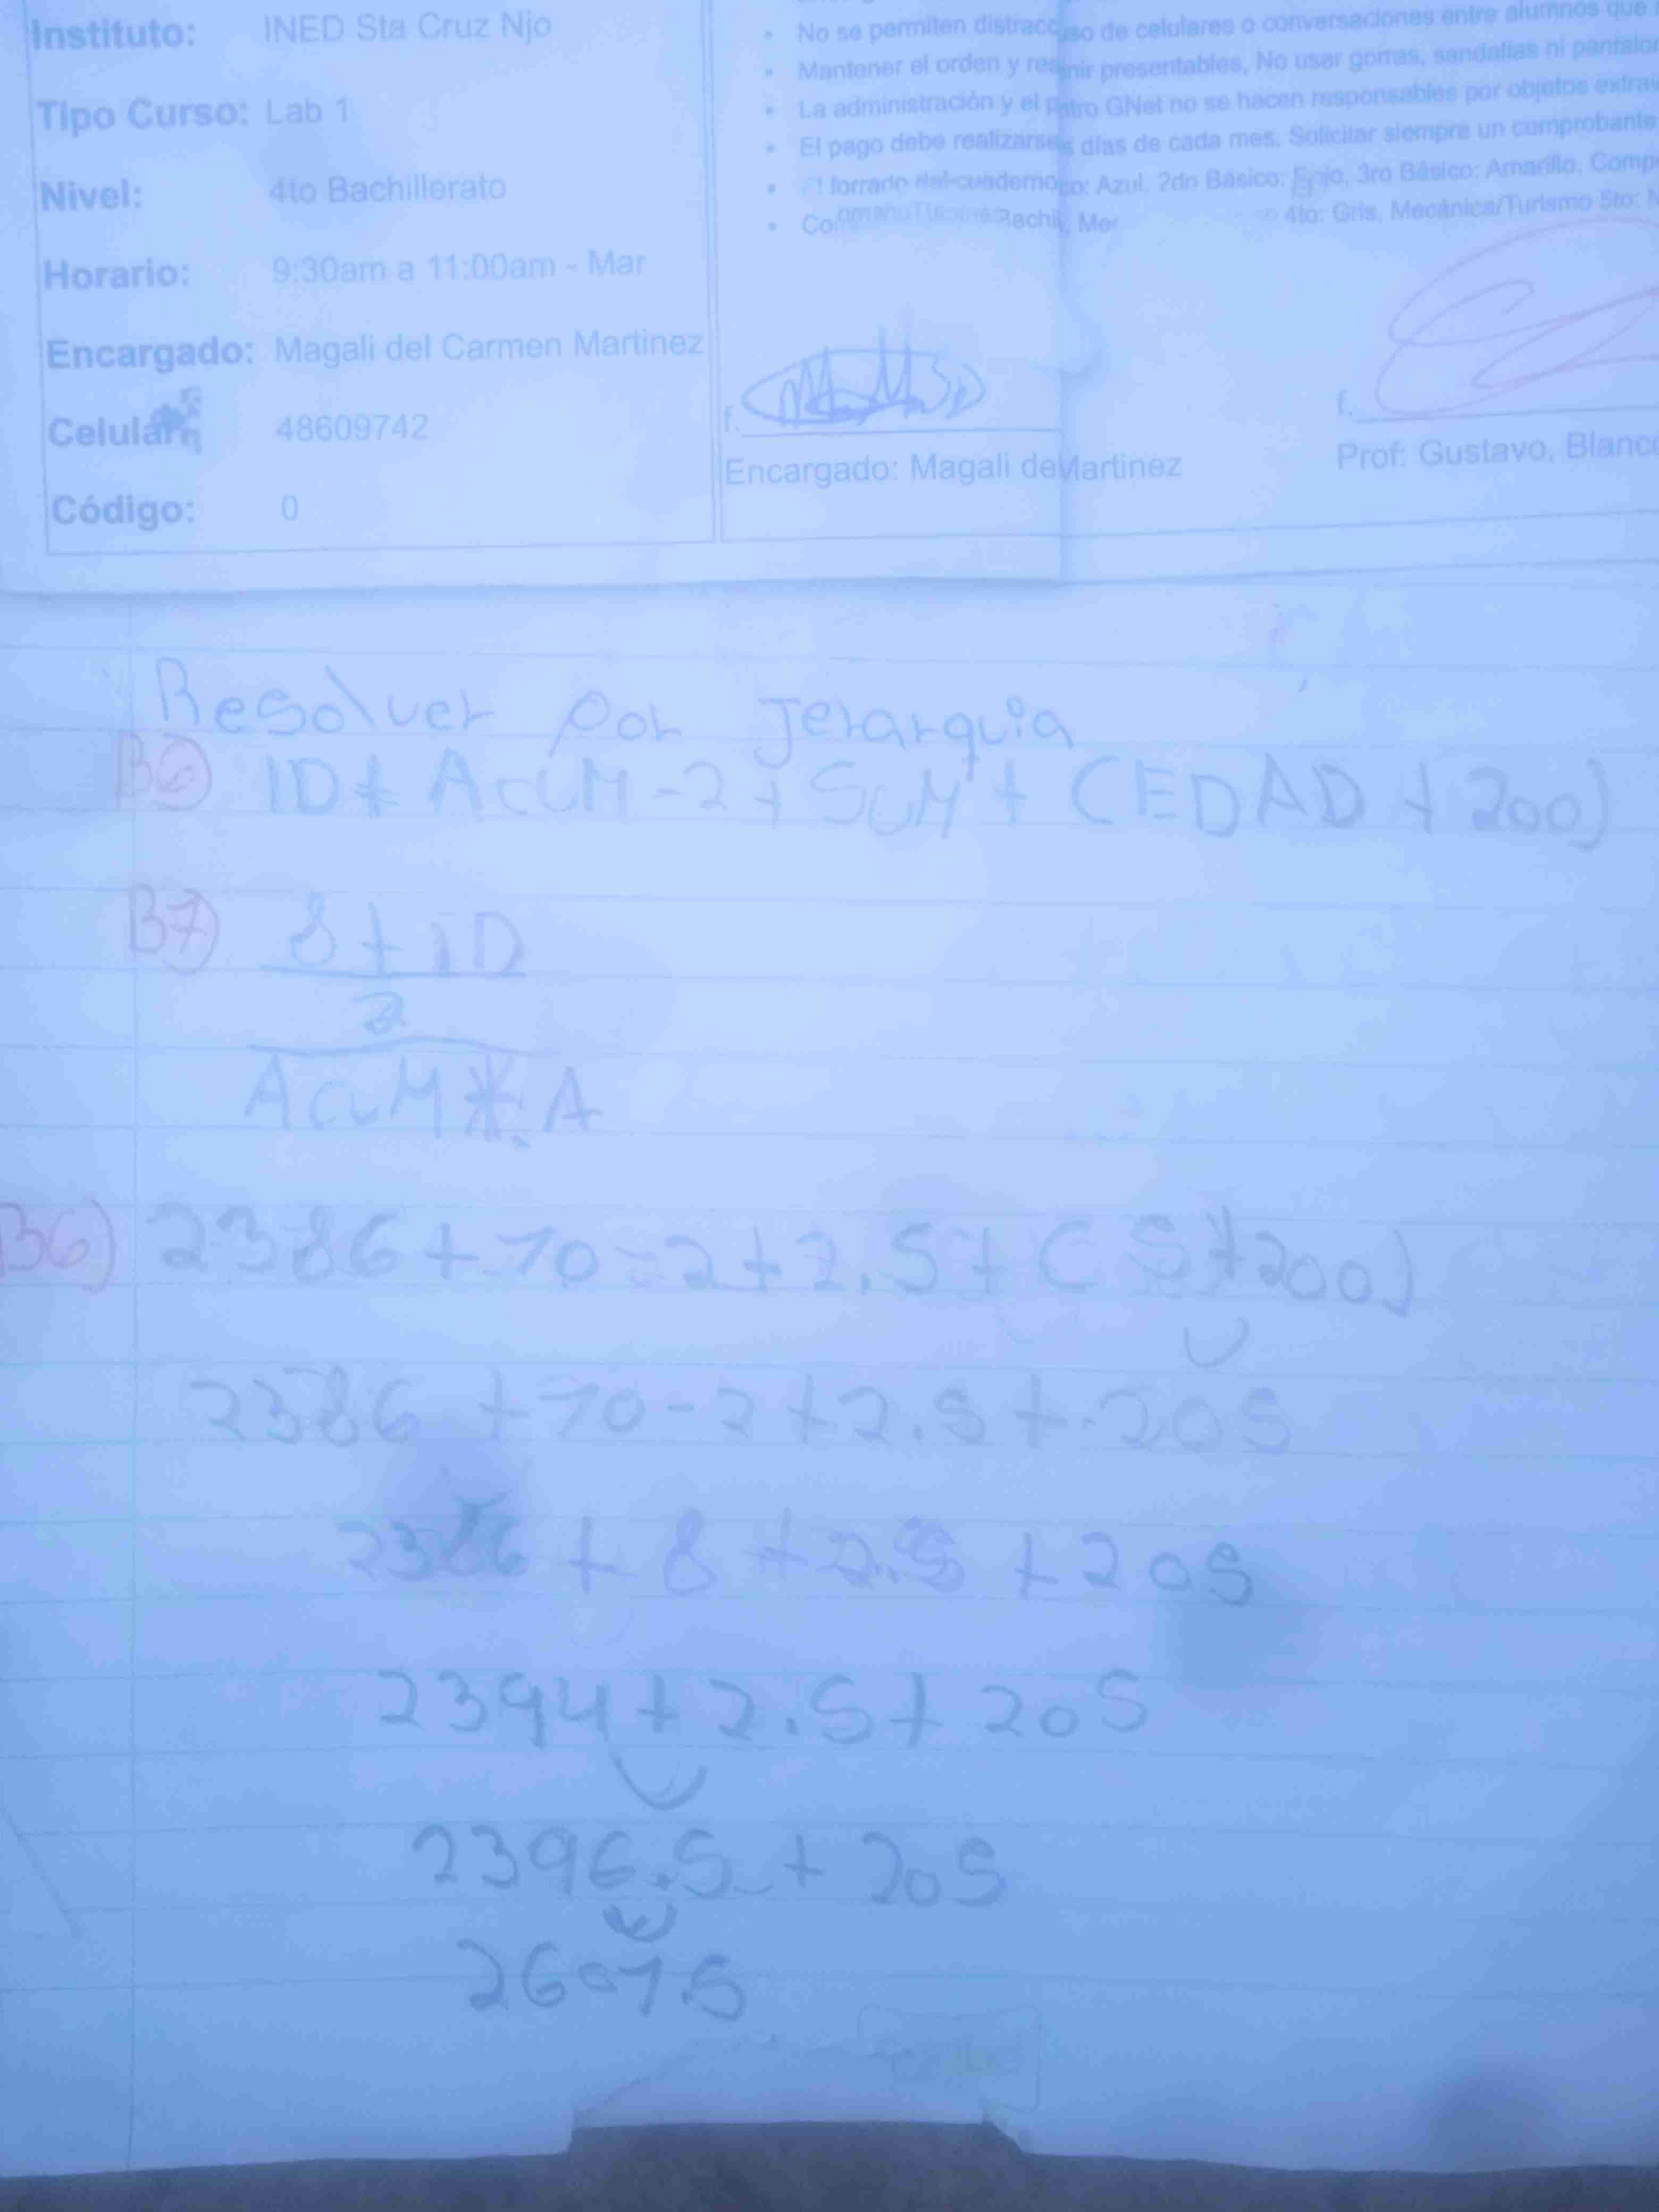 Instituto: INED Sta Cruz Njo
Tipo Curso: Lab 1
Nivel: 4to Bachillerato
Horario: 9:30am a 11:00am - Mar
Encargado: Magali del Carmen Martinez
Celular: 48609742
Código: 0
No se permiten distracc so de celulares o conversaciones entre alumnos que
Mantener el orden y re nir presentables, No usar gorras, sandalias ni pantalon
La administración y el p tro GNet no se hacen responsables por objetos extrav
El pago debe realizarse s días de cada mes. Solicitar siempre un comprobante
El forrado del cuaderno co: Azul, 2do Básico: Rojo, 3ro Básico: Amarillo, Comp
4to: Gris, Mecánica/Turismo 5to: N
f.
Encargado: Magali de Martinez
f.
Prof: Gustavo, Blanco
Resolver por Jerarquia
B6) ID + ACUM - 2 + SUM + (EDAD + 200)
B7) 8 + iD
2
ACUM * A
B6) 2386 + 10 - 2 + 2.5 + (5 + 200)
2386 + 10 - 2 + 2.5 + 205
2386 + 8 + 2.5 + 205
2394 + 2.5 + 205
2396.5 + 205
2601.5